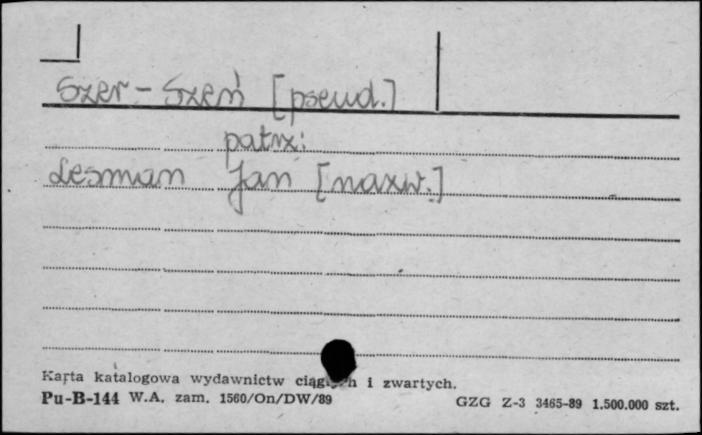 Szer-Szeń [pseud.]
patrz:
Lesman Jan [nazw.]
Karta katalogowa wydawnictw ciągłych i zwartych.
Pu-B-144 W.A. zam. 1560/On/DW/89
GZG Z-3 3465-89 1.500.000 szt.